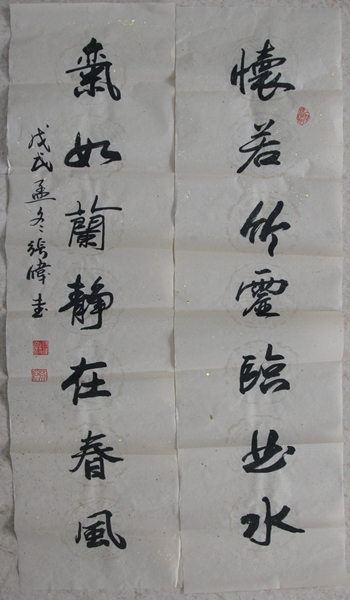 懷若竹虛臨曲水
氣如蘭靜在春風
戊戌孟冬張暐書